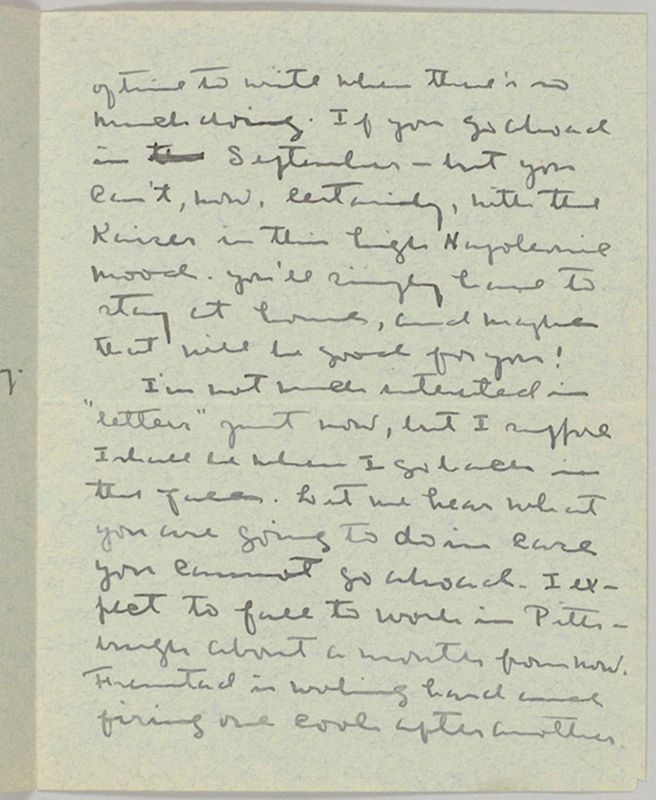 of time to write when there's so
much doing. If you go abroad
in the September – but you
can't, now, certainly, with the
Kaiser in this high Napoleonic
mood. You'll simply have to
stay at home, and maybe
that will be good for you!
I'm not much interested in
"letters" just now, but I suppose
I shall be when I go back in
the fall. Let me hear what
you are going to do in case
you cannot go abroad. I ex-
pect to fall to work in Pitts-
burgh about a month from now.
Fremstad is working hard and
firing one cook after another.